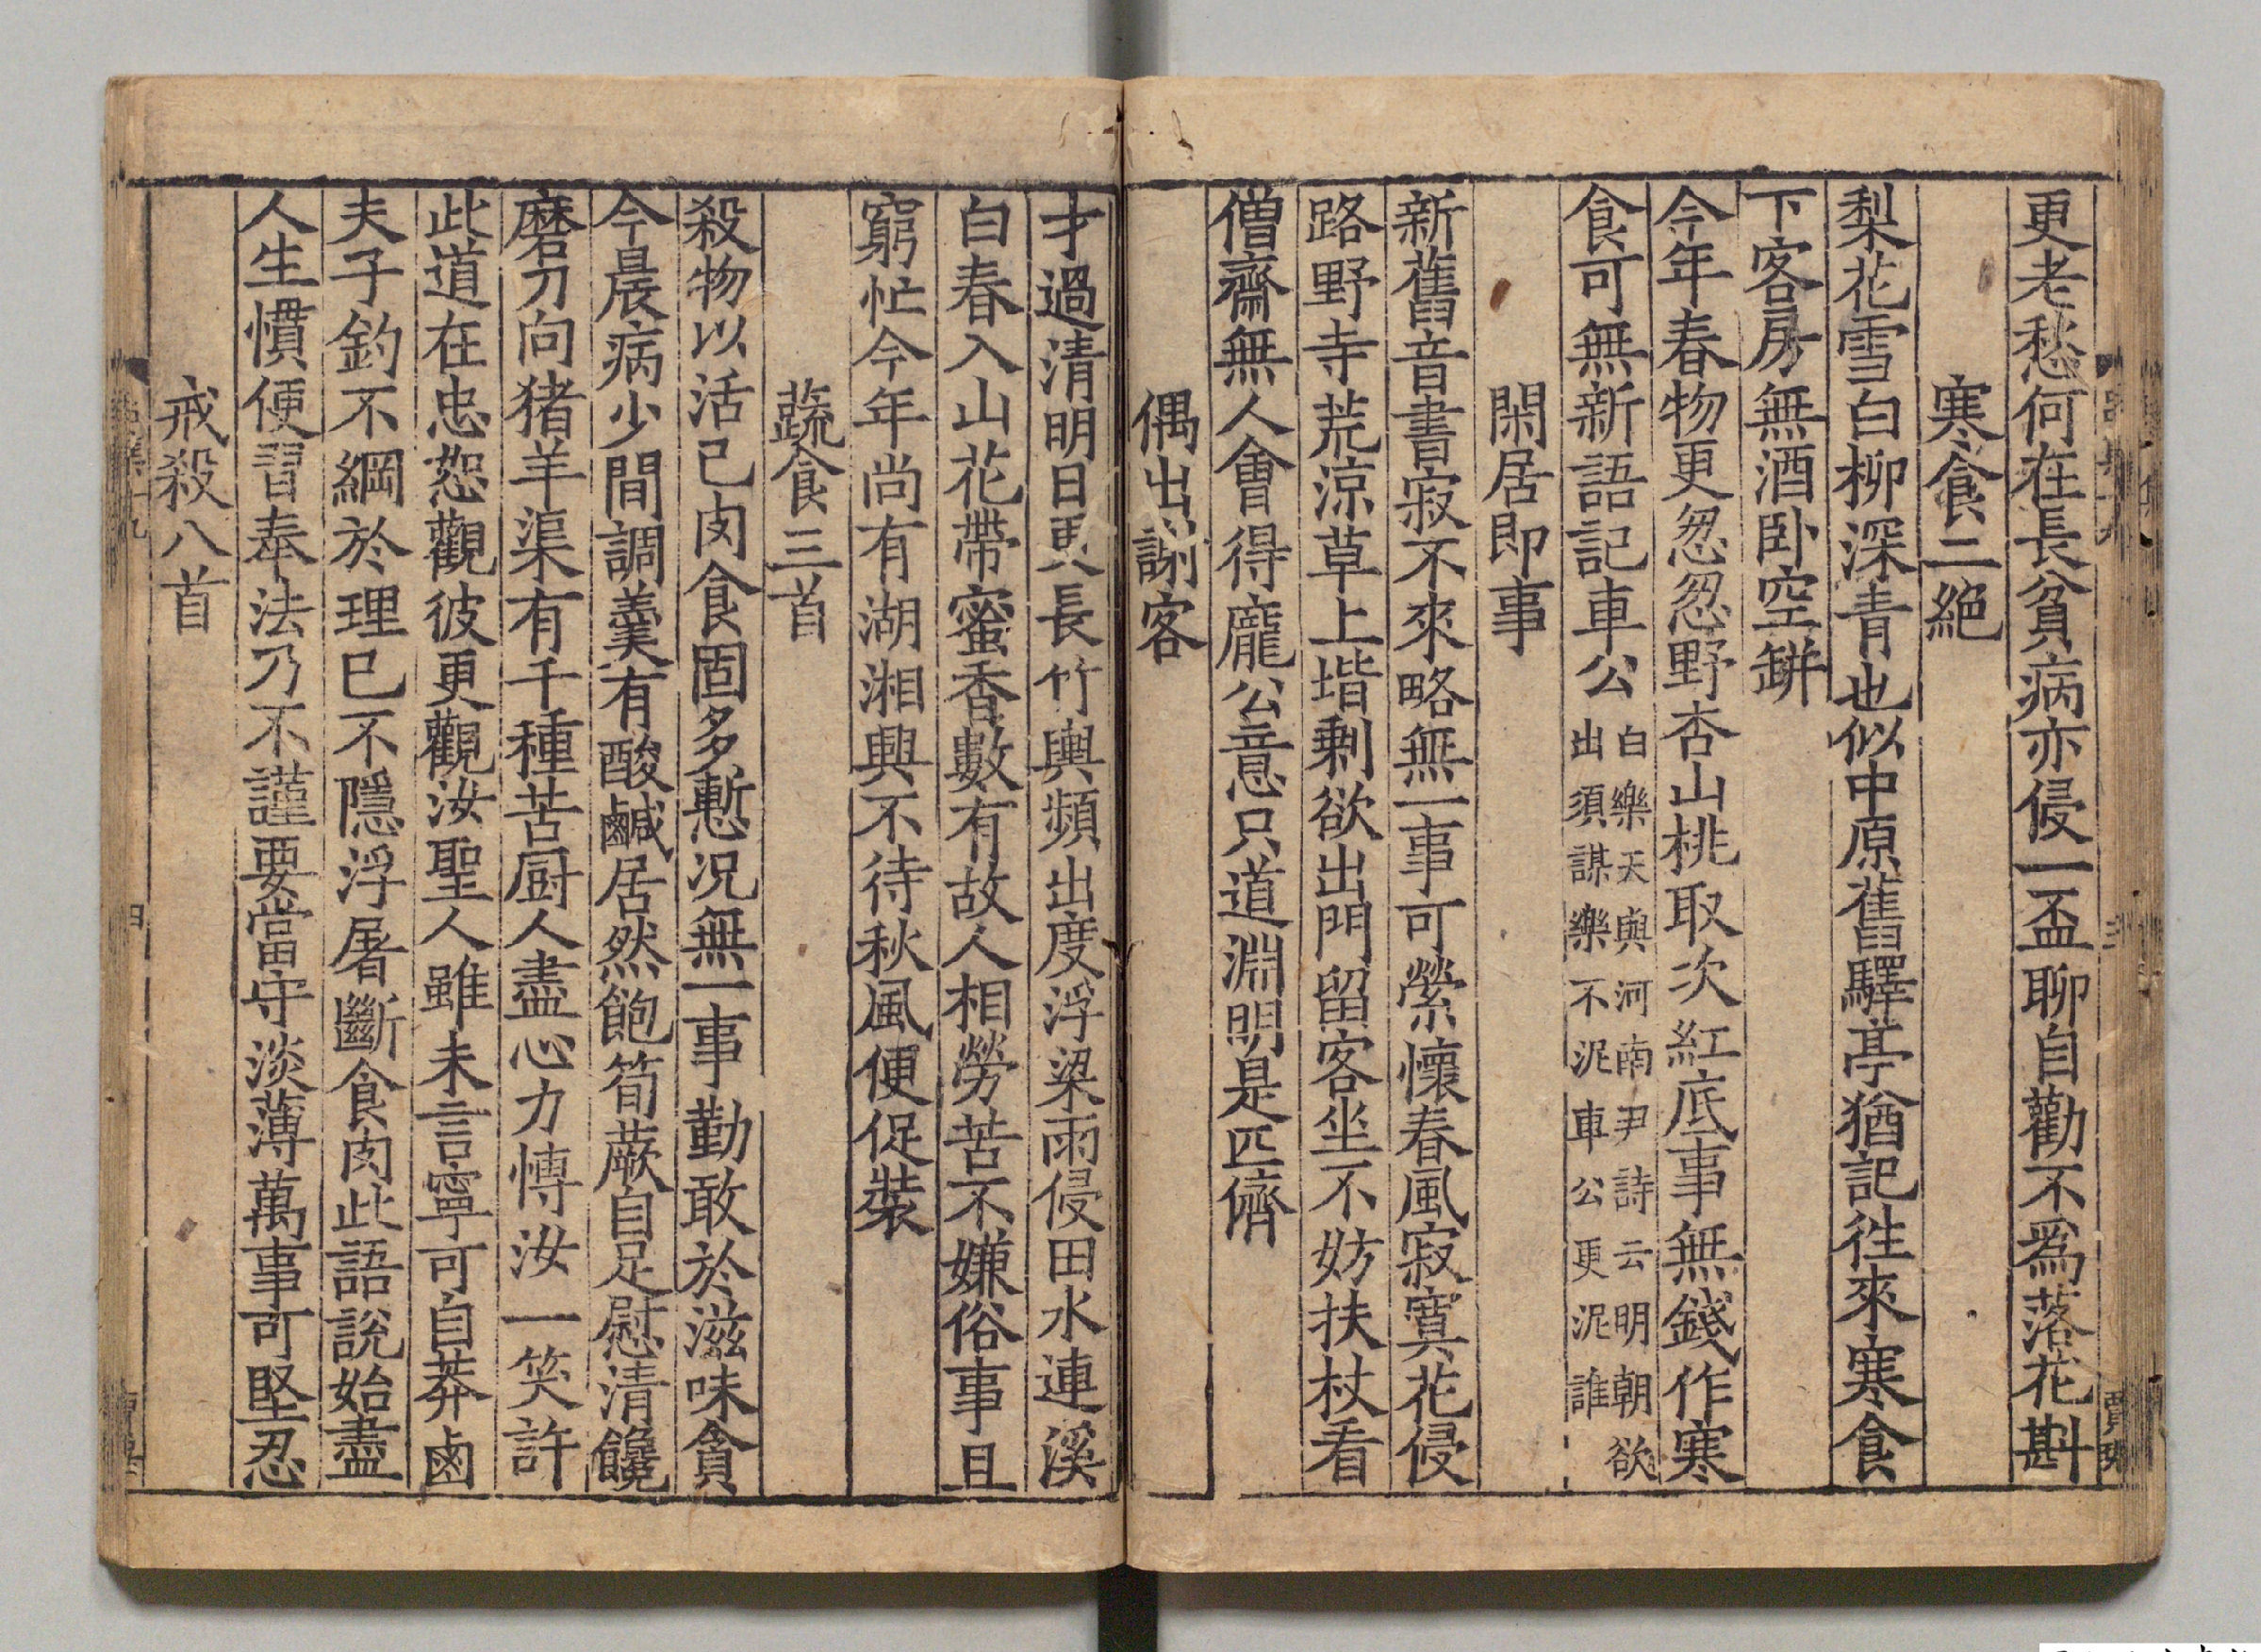 更老愁何在長貧病亦侵一盃聊自勸不爲落花斟
寒食二絕
梨花雪白柳深青也似中原舊驛亭猶記往來寒食
下客房無酒卧空缾
今年春物更怱怱野杏山桃取次紅底事無錢作寒
食可無新語記車公
白樂天與河南尹詩云明朝欲
出須謀樂不泥車公更泥誰
閑居即事
新舊音書寂不來略無一事可縈懷春風寂寞花侵
路野寺荒涼草上堦剩欲出門留客坐不妨扶杖看
僧齋無人會得龐公意只道淵明是匹儕
偶出謝客
才過清明日更長竹輿頻出度浮梁雨侵田水連溪
白春入山花帶蜜香數有故人相勞苦不嫌俗事且
窮忙今年尚有湖湘興不待秋風便促裝
蔬食三首
殺物以活己肉食固多慙况無一事勤敢於滋味貪
今晨病少間調羹有酸鹹居然飽筍蕨自足慰清饞
磨刀向猪羊渠有千種苦厨人盡心力愽汝一笑許
此道在忠恕觀彼更觀汝聖人雖未言寧可自莽鹵
夫子釣不綱於理已不隱浮屠斷食肉此語說始盡
人生慣便習奉法乃不謹要當守淡薄萬事可堅忍
戒殺八首
四